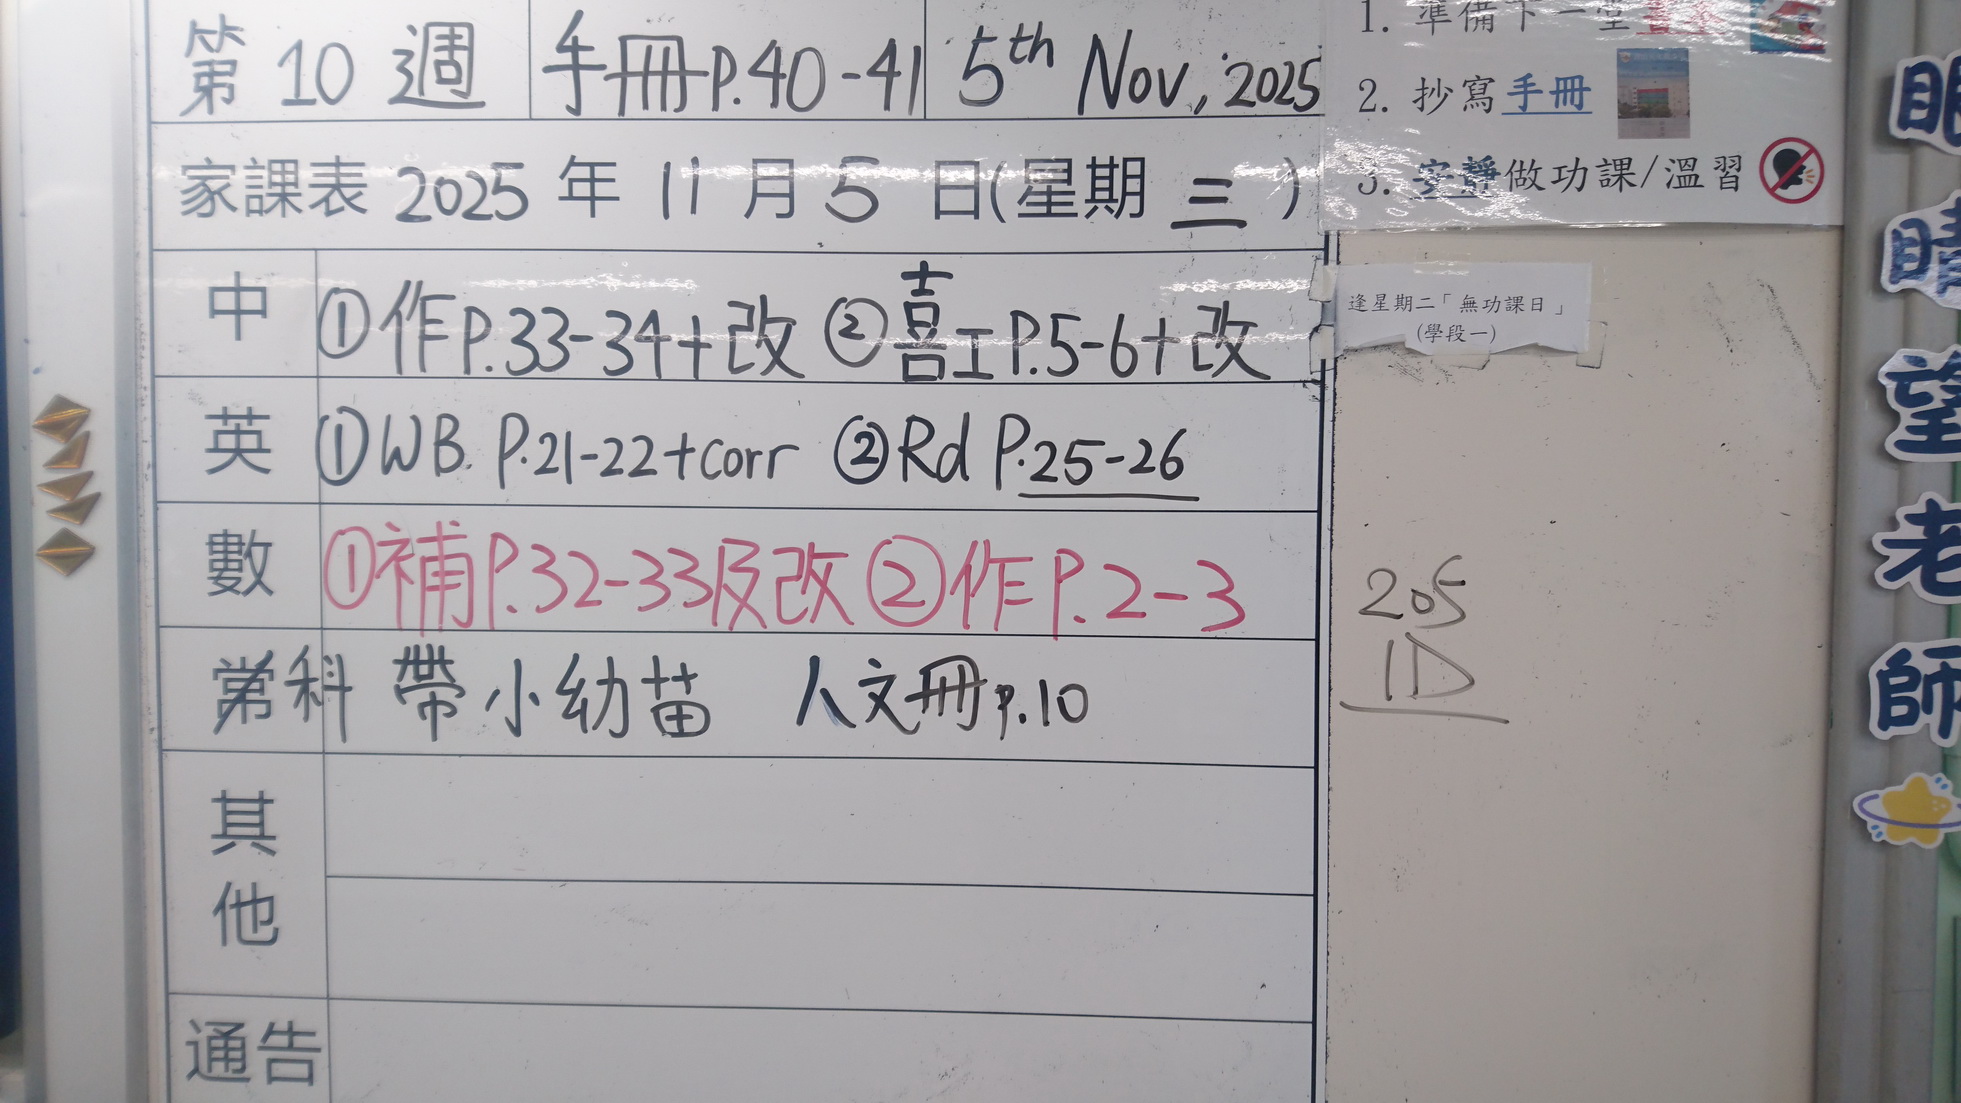 第 10 週 手冊P.40-41 5th Nov, 2025
家課表 2025 年 11 月 5 日(星期 三 )
中 ①作P.33-34+改 ②喜工P.5-6+改
英 ①WB. P.21-22+corr ②Rd P.25-26
數 ①補P.32-33及改 ②作P.2-3
常科 帶小幼苗 人文冊p.10
其他
通告
1. 準備下一堂
2. 抄寫手冊
3. 安靜做功課/溫習
逢星期二「無功課日」
(學段一)
205
1D
眼睛望老師